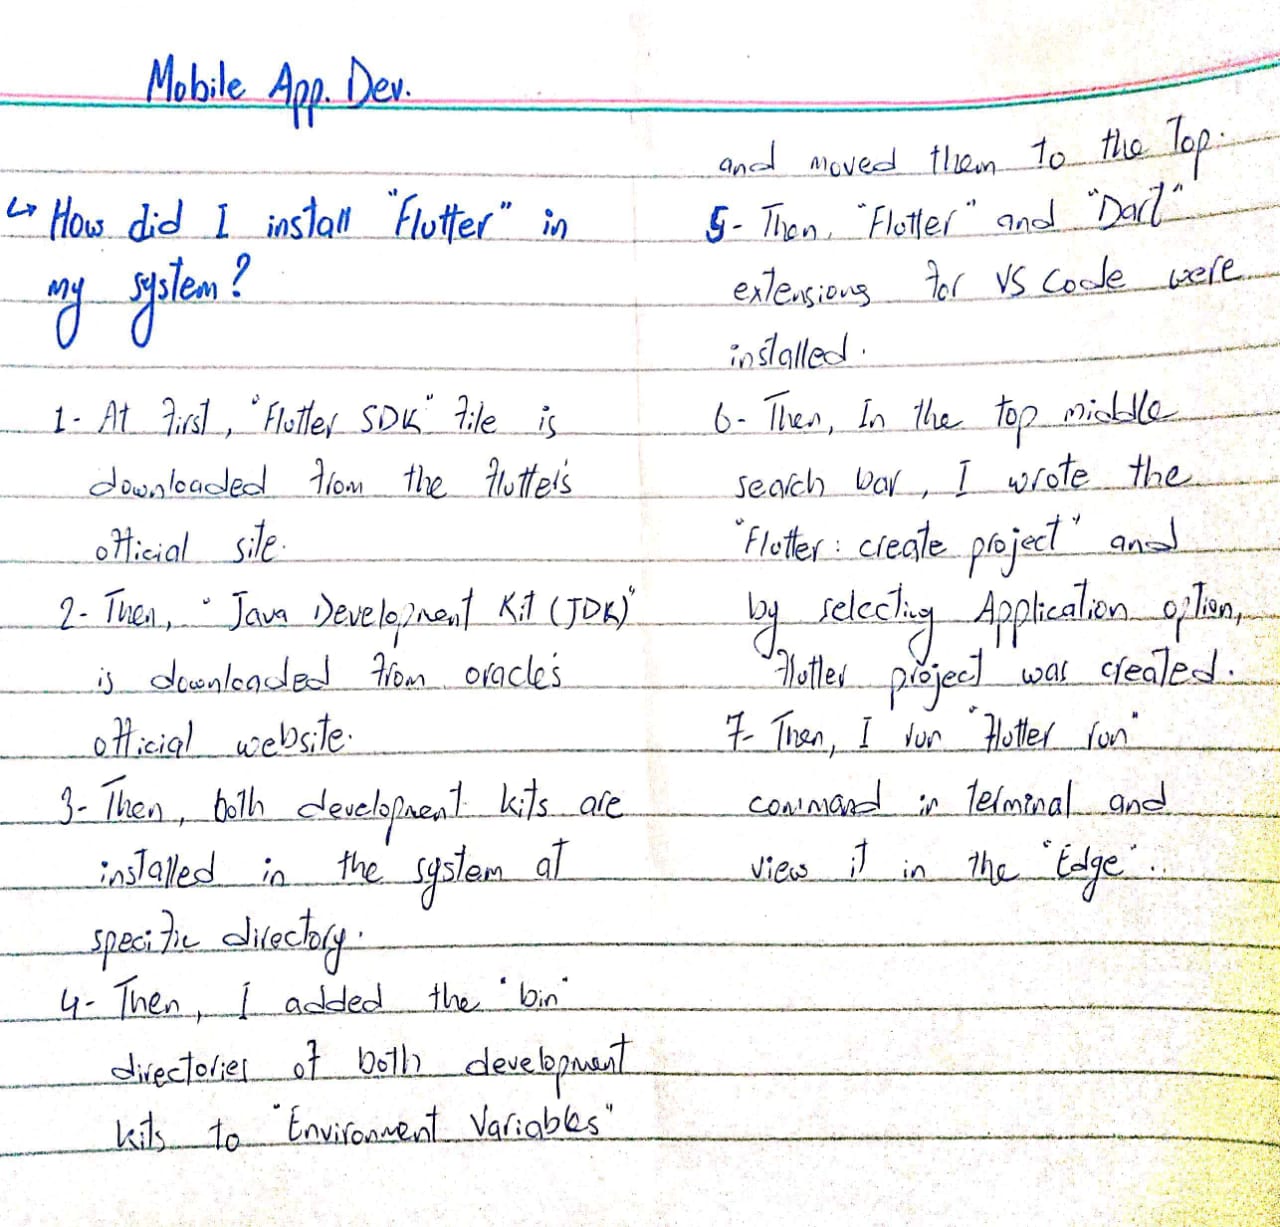 Mobile App. Dev.
↳ How did I install "Flutter" in
my system?
1- At first, "Flutter SDK" file is
downloaded from the flutter's
official site.
2- Then, "Java Development Kit (JDK)"
is downloaded from oracle's
official website.
3- Then, both development kits are
installed in the system at
specific directory.
4- Then, I added the "bin"
directories of both development
kits to "Environment Variables"
and moved them to the Top.
5- Then, "Flutter" and "Dart"
extensions for VS Code were
installed.
6- Then, In the top middle
search bar, I wrote the
"Flutter: create project" and
by selecting Application option,
flutter project was created.
7- Then, I run "flutter run"
command in terminal and
view it in the "Edge"..